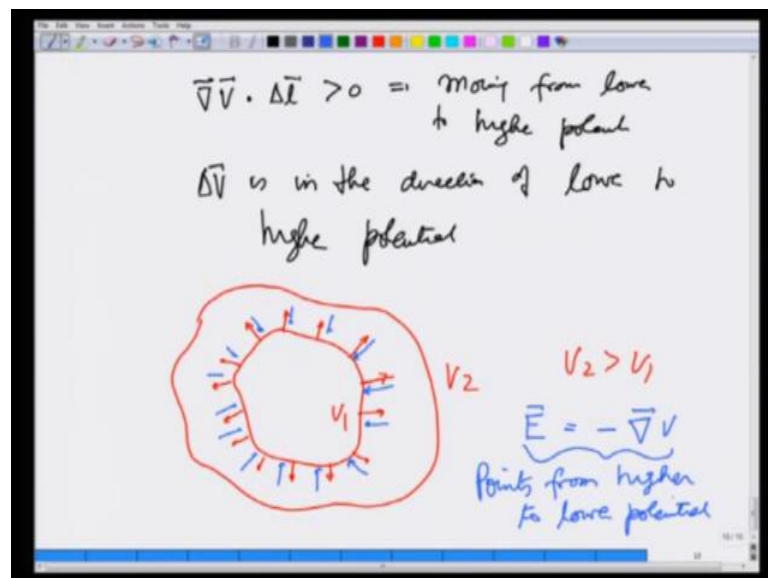 File Edit View Insert Actions Tools Help
∇⃗V⃗ · Δl⃗ > 0 ⇒ Moving from lower
to highe potent
ΔV⃗ is in the direction of lowe to
highe potential
V2
V2 > V1
V1
E⃗ = - ∇⃗V
Points from higher
to lowe potential